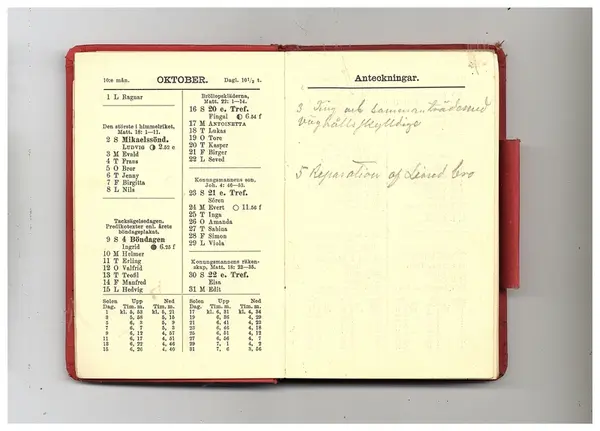 10:e mån. OKTOBER. Dagl. 10½ t.
1 L Ragnar
Den störste i himmelriket,
Matt. 18: 1—11.
2 S Mikaelssönd.
LUDVIG 2.52 e
3 M Evald
4 T Frans
5 O Bror
6 T Jenny
7 F Birgitta
8 L Nils
Tacksägelsedagen.
Predikotexter enl. årets
böndagsplakat.
9 S 4 Böndagen
Ingrid 6.25 f
10 M Helmer
11 T Erling
12 O Valfrid
13 T Teofil
14 F Manfred
15 L Hedvig
Bröllopskläderna,
Matt. 22: 1—14.
16 S 20 e. Tref.
Fingal 6.54 f
17 M ANTOINETTA
18 T Lukas
19 O Tore
20 T Kasper
21 F Birger
22 L Seved
Konungsmannens son,
Joh. 4: 46—53.
23 S 21 e. Tref.
Sören
24 M Evert 11.56 f
25 T Inga
26 O Amanda
27 T Sabina
28 F Simon
29 L Viola
Konungsmannens räken-
skap, Matt. 18: 23—35.
30 S 22 e. Tref.
Elsa
31 M Edit
Solen Upp Ned
Dag. Tim. m. Tim. m.
1 kl. 5, 53 kl. 5, 21
3 5, 58 5, 15
5 6, 3 5, 9
7 6, 7 5, 3
9 6, 12 4, 57
11 6, 17 4, 51
13 6, 22 4, 46
15 6, 26 4, 40
Solen Upp Ned
Dag. Tim. m. Tim. m.
17 kl. 6, 31 kl. 4, 34
19 6, 36 4, 29
21 6, 41 4, 23
23 6, 46 4, 18
25 6, 51 4, 12
27 6, 56 4, 7
29 7, 1 4, 2
31 7, 6 3, 56
Anteckningar.
3 Ting och sammanträde med
väghållsskyldige
5 Reparation af bro